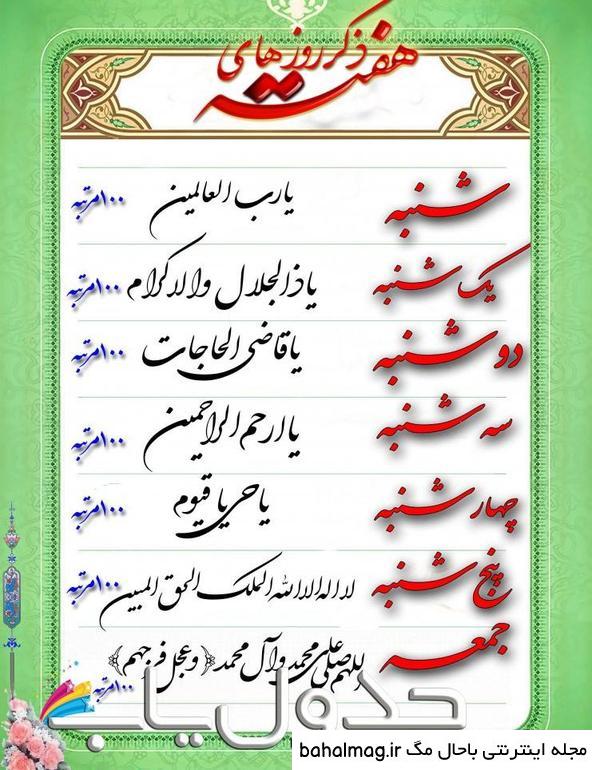 ذکر روزهای
هفته
شنبه یا رب العالمین ۱۰۰مرتبه
یک شنبه یا ذالجلال والاکرام ۱۰۰مرتبه
دوشنبه یا قاضی الحاجات ۱۰۰مرتبه
سه شنبه یا ارحم الراحمین ۱۰۰مرتبه
چهارشنبه یا حی یا قیوم ۱۰۰مرتبه
پنج شنبه لا اله الا الله الملک الحق المبین ۱۰۰مرتبه
جمعه اللهم صلی علی محمد وآل محمد ﴿وعجل فرجهم﴾ ۱۰۰مرتبه
جدول یاب
مجله اینترنتی باحال مگ bahalmag.ir